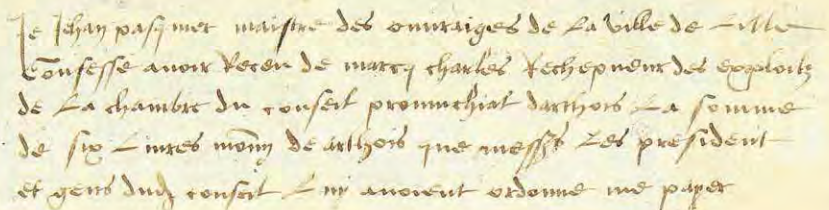 Je Jehan pasqmet maistre des ouvraiges de la ville de Lille
Confesse avoir Receu de marcq charles Rechepveur des exploitz
de La chambre du conseil provinchial darthois La somme
de six Livres monn de arthois que mess Les president
et gens dud conseil Luy avoient ordonne me payer